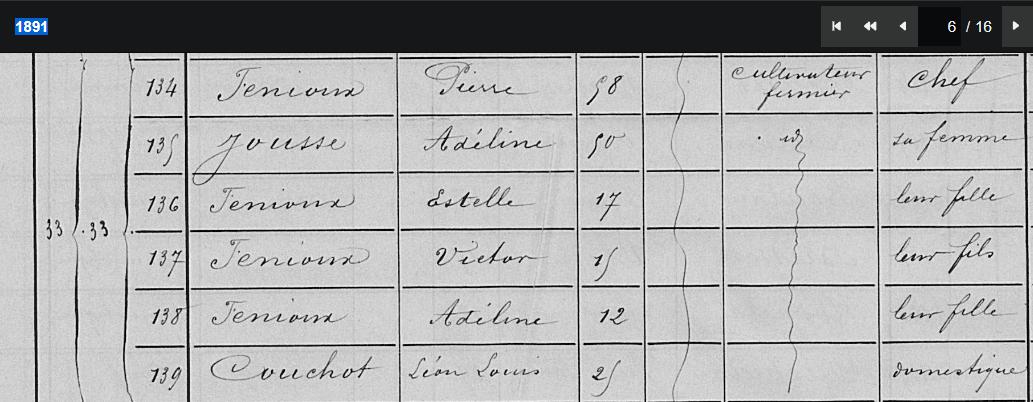 1891
6 / 16
134 Fenioux Pierre 58 cultivateur fermier Chef
135 Jousse Adéline 50 . id sa femme
136 Fenioux Estelle 17 leur fille
33 33 137 Fenioux Victor 15 leur fils
138 Fenioux Adéline 12 leur fille
139 Couchot Léon Louis 25 domestique